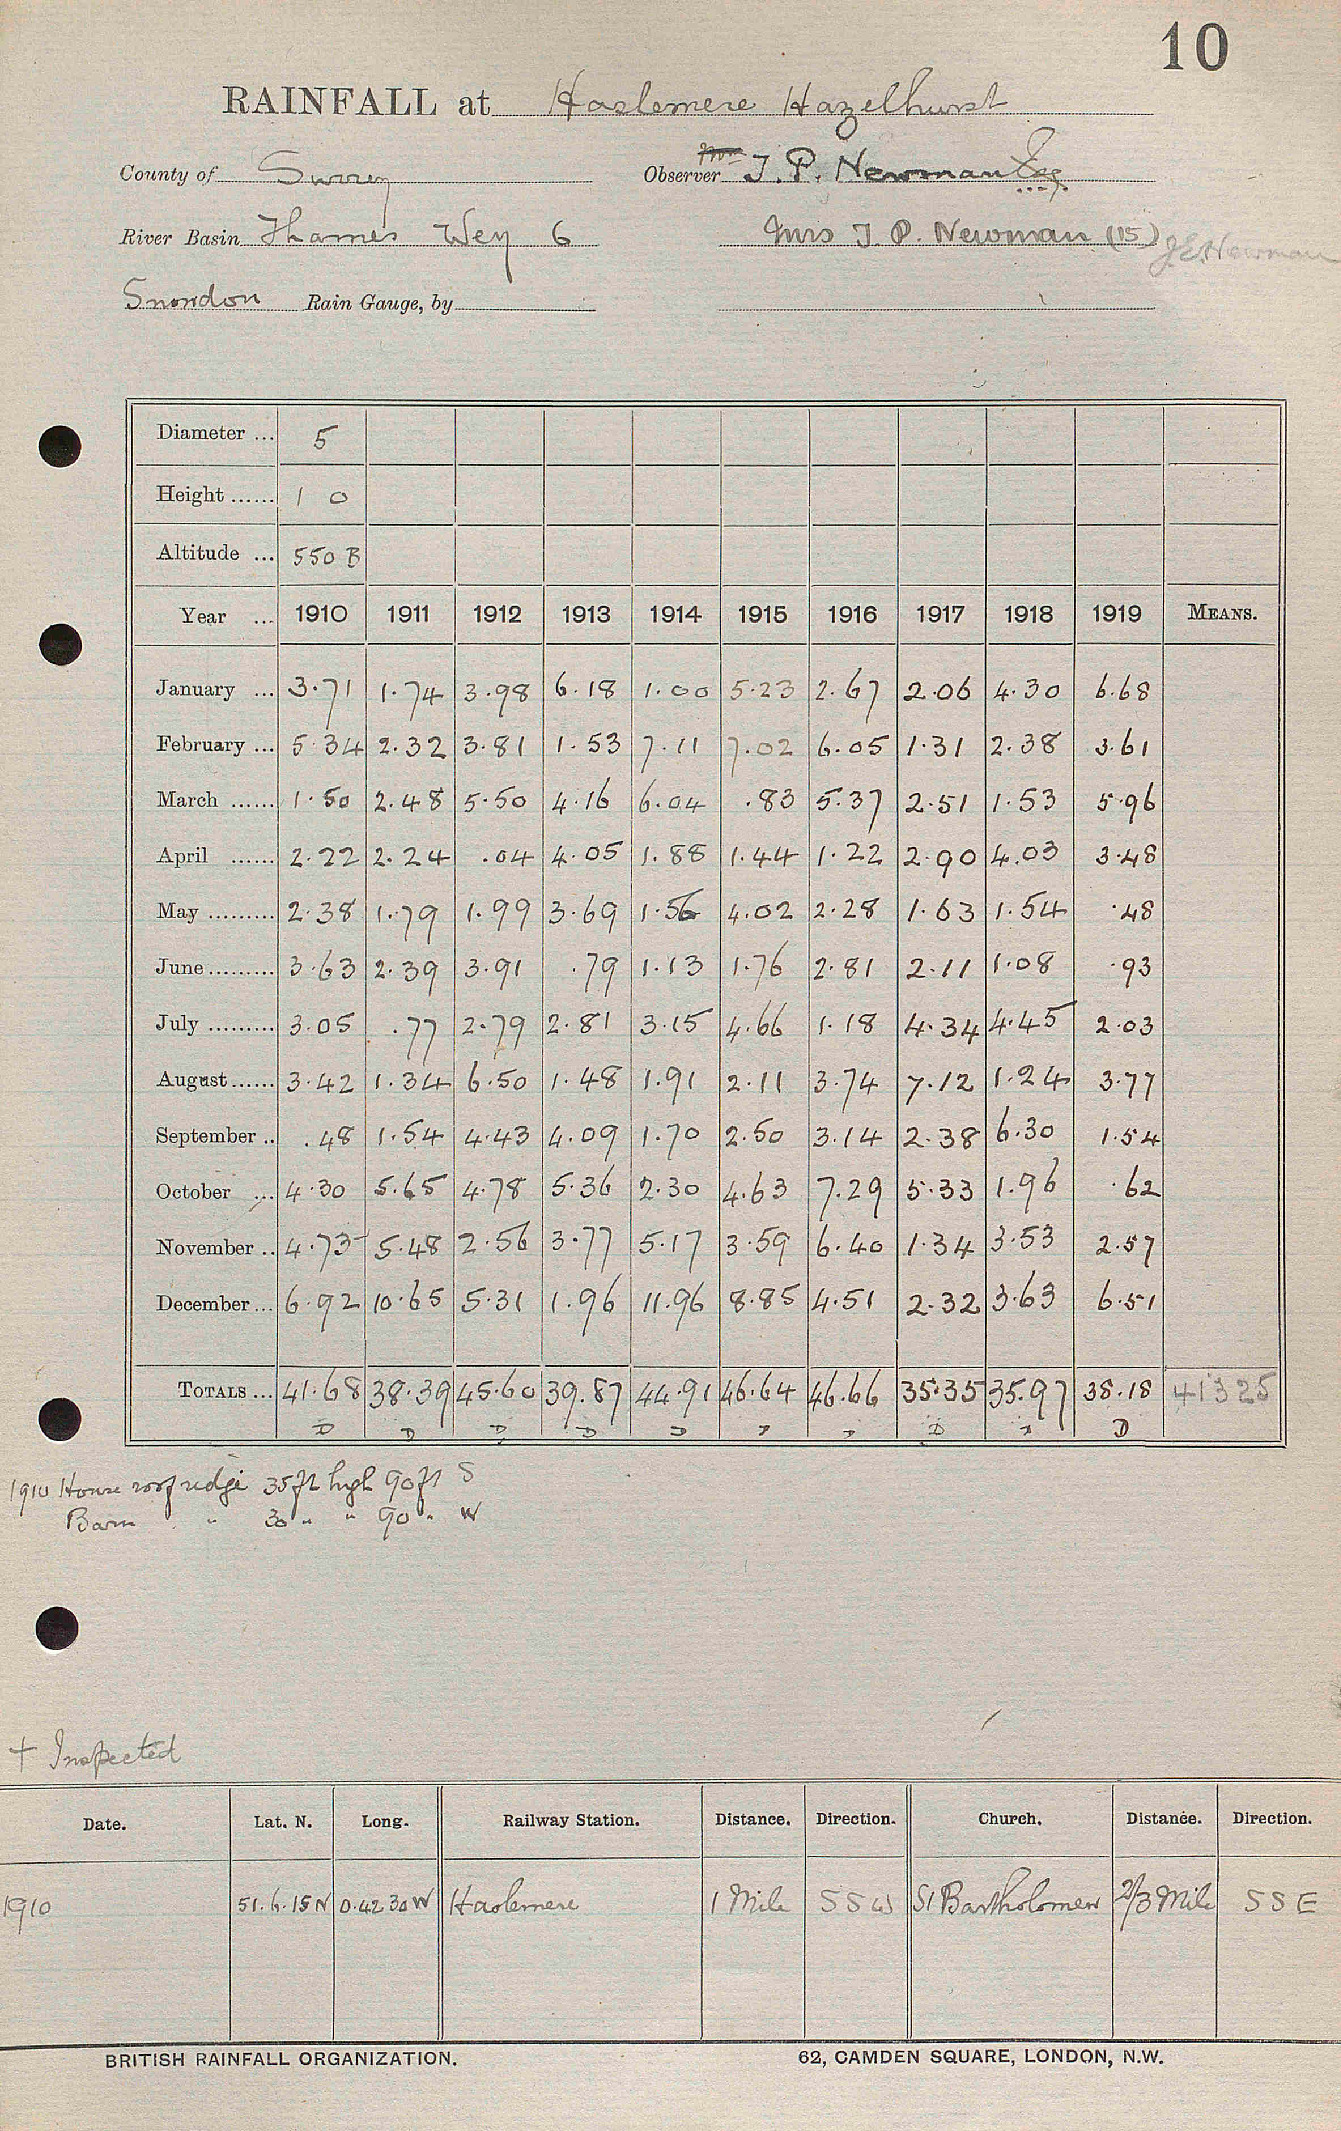 10
RAINFALL at Haslemere Hazelhurst
County of Surrey Observer J. P. Newman Esq
River Basin Thames Wey 6 Mrs J. P. Newman (15) J.E. Newman
Snowdon Rain Gauge, by
Diameter ... 5
Height ...... 1 0
Altitude ... 550 B
Year ... 1910 1911 1912 1913 1914 1915 1916 1917 1918 1919 MEANS.
January ... 3.71 1.74 3.98 6.18 1.00 5.23 2.67 2.06 4.30 6.68
February ... 5.34 2.32 3.81 1.53 7.11 7.02 6.05 1.31 2.38 3.61
March ...... 1.50 2.48 5.50 4.16 6.04 .83 5.37 2.51 1.53 5.96
April ...... 2.22 2.24 .04 4.05 1.88 1.44 1.22 2.90 4.03 3.48
May ......... 2.38 1.79 1.99 3.69 1.56 4.02 2.28 1.63 1.54 .48
June ......... 3.63 2.39 3.91 .79 1.13 1.76 2.81 2.11 1.08 .93
July ......... 3.05 .77 2.79 2.81 3.15 4.66 1.18 4.34 4.45 2.03
August ...... 3.42 1.34 6.50 1.48 1.91 2.11 3.74 7.12 1.24 3.77
September .. .48 1.54 4.43 4.09 1.70 2.50 3.14 2.38 6.30 1.54
October ... 4.30 5.65 4.78 5.36 2.30 4.63 7.29 5.33 1.96 .62
November .. 4.73 5.48 2.56 3.77 5.17 3.59 6.40 1.34 3.53 2.57
December ... 6.92 10.65 5.31 1.96 11.96 8.85 4.51 2.32 3.63 6.51
TOTALS ... 41.68 38.39 45.60 39.87 44.91 46.64 46.66 35.35 35.97 38.18 41325
D D D D D D D D D D
1910 House roof ridge 35 ft high 90 ft S
Barn " 30 " " 90 " W
+ Inspected
Date. Lat. N. Long. Railway Station. Distance. Direction. Church. Distance. Direction.
1910 51.6.15 N 0.42 30 W Haslemere 1 Mile SSW St Bartholomew 2/3 Mile SSE
BRITISH RAINFALL ORGANIZATION. 62, CAMDEN SQUARE, LONDON, N.W.